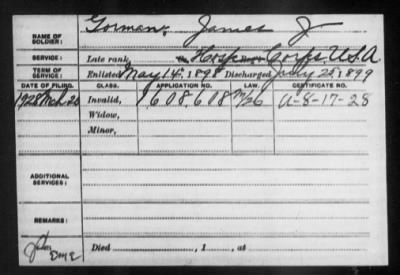 NAME OF SOLDIER: Gorman, James J
SERVICE: Late rank Hosp Corps, U.S.A
TERM OF SERVICE: Enlisted May 14, 1898 Discharged July 25, 1899
DATE OF FILING. CLASS. APPLICATION NO. LAW. CERTIFICATE NO.
1928 Mch 20 Invalid, 1608608 A-8-17-28
Widow,
Minor,
ADDITIONAL SERVICES:
REMARKS:
Died , 1 , at